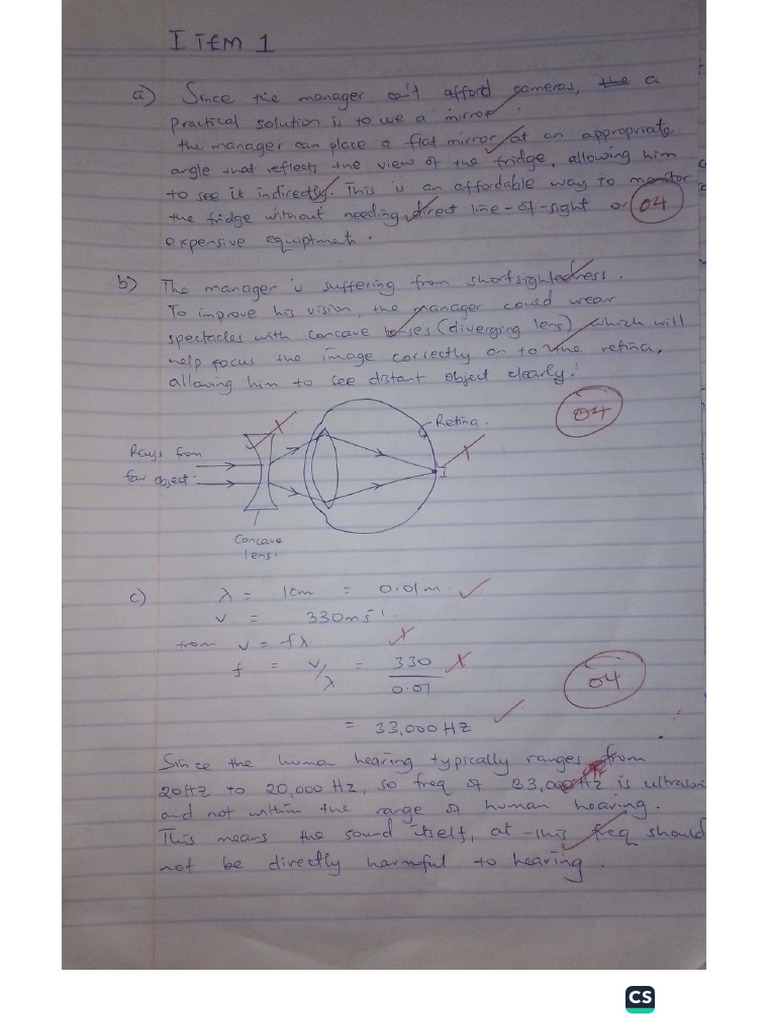 ITEM 1
a) Since the manager can't afford cameras, the a
practical solution is to use a mirror.
the manager can place a flat mirror at an appropriate
angle that reflects the view of the fridge, allowing him
to see it indirectly. This is an affordable way to monitor
the fridge without needing direct line-of-sight or
04
expensive equiptment.
b) The manager is suffering from shortsightedness.
To improve his vision, the manager could wear
spectacles with concave lenses (diverging lens) which will
help focus the image correctly on to the retina,
allowing him to see distant object clearly.
04
Retina.
Rays from
far object.
I
Concave
lens.
c) λ = 1cm = 0.01m.
v = 330ms-1.
from v = fλ.
f = v/λ = 330/0.01
04
= 33,000 HZ
Since the human hearing typically ranges from
20HZ to 20,000 HZ, so freq of 33,000 HZ is
and not within the range of human hearing.
This means the sound itself, at this freq should
not be directly harmful to hearing.
CS